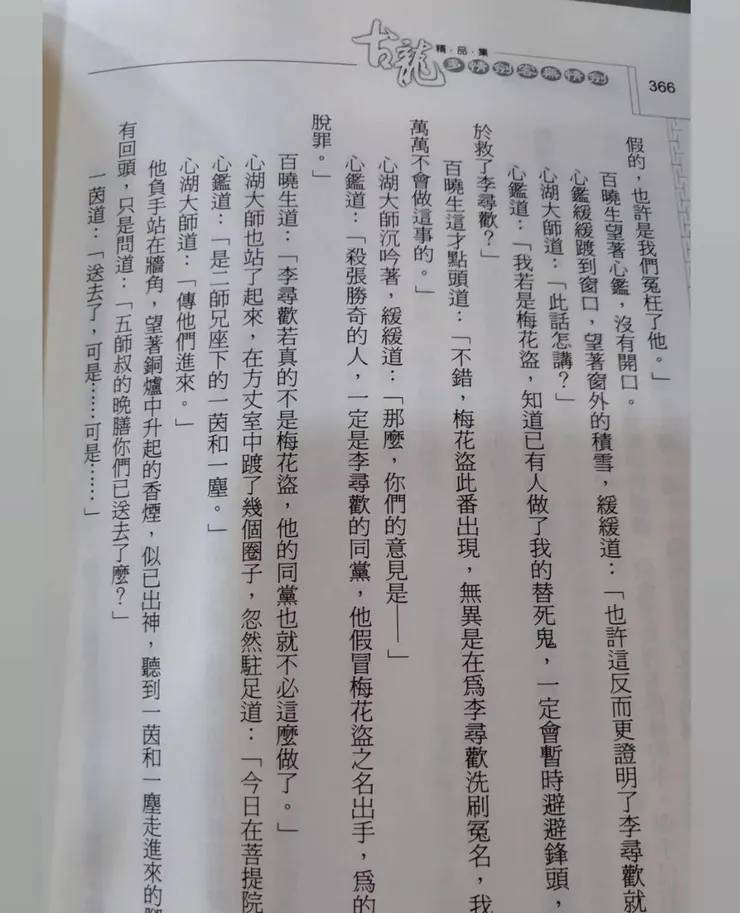 古龍
精·品·集
多情劍客無情劍
366
假的，也許是我們冤枉了他。」
百曉生望著心鑑，沒有開口。
心鑑緩緩踱到窗口，望著窗外的積雪，緩緩道：「也許這反而更證明了李尋歡就
心湖大師道：「此話怎講？」
心鑑道：「我若是梅花盜，知道已有人做了我的替死鬼，一定會暫時避避鋒頭，
於救了李尋歡？」
百曉生這才點頭道：「不錯，梅花盜此番出現，無異是在爲李尋歡洗刷冤名，我
萬萬不會做這事的。」
心湖大師沉吟著，緩緩道：「那麼，你們的意見是——」
心鑑道：「殺張勝奇的人，一定是李尋歡的同黨，他假冒梅花盜之名出手，爲的
脫罪。」
百曉生道：「李尋歡若真的不是梅花盜，他的同黨也就不必這麼做了。」
心湖大師也站了起來，在方丈室中踱了幾個圈子，忽然駐足道：「今日在菩提院
心鑑道：「是二師兄座下的一茵和一塵。」
心湖大師道：「傳他們進來。」
他負手站在牆角，望著銅爐中升起的香煙，似已出神，聽到一茵和一塵走進來的
有回頭，只是問道：「五師叔的晚膳你們已送去了麼？」
一茵道：「送去了，可是……可是……」